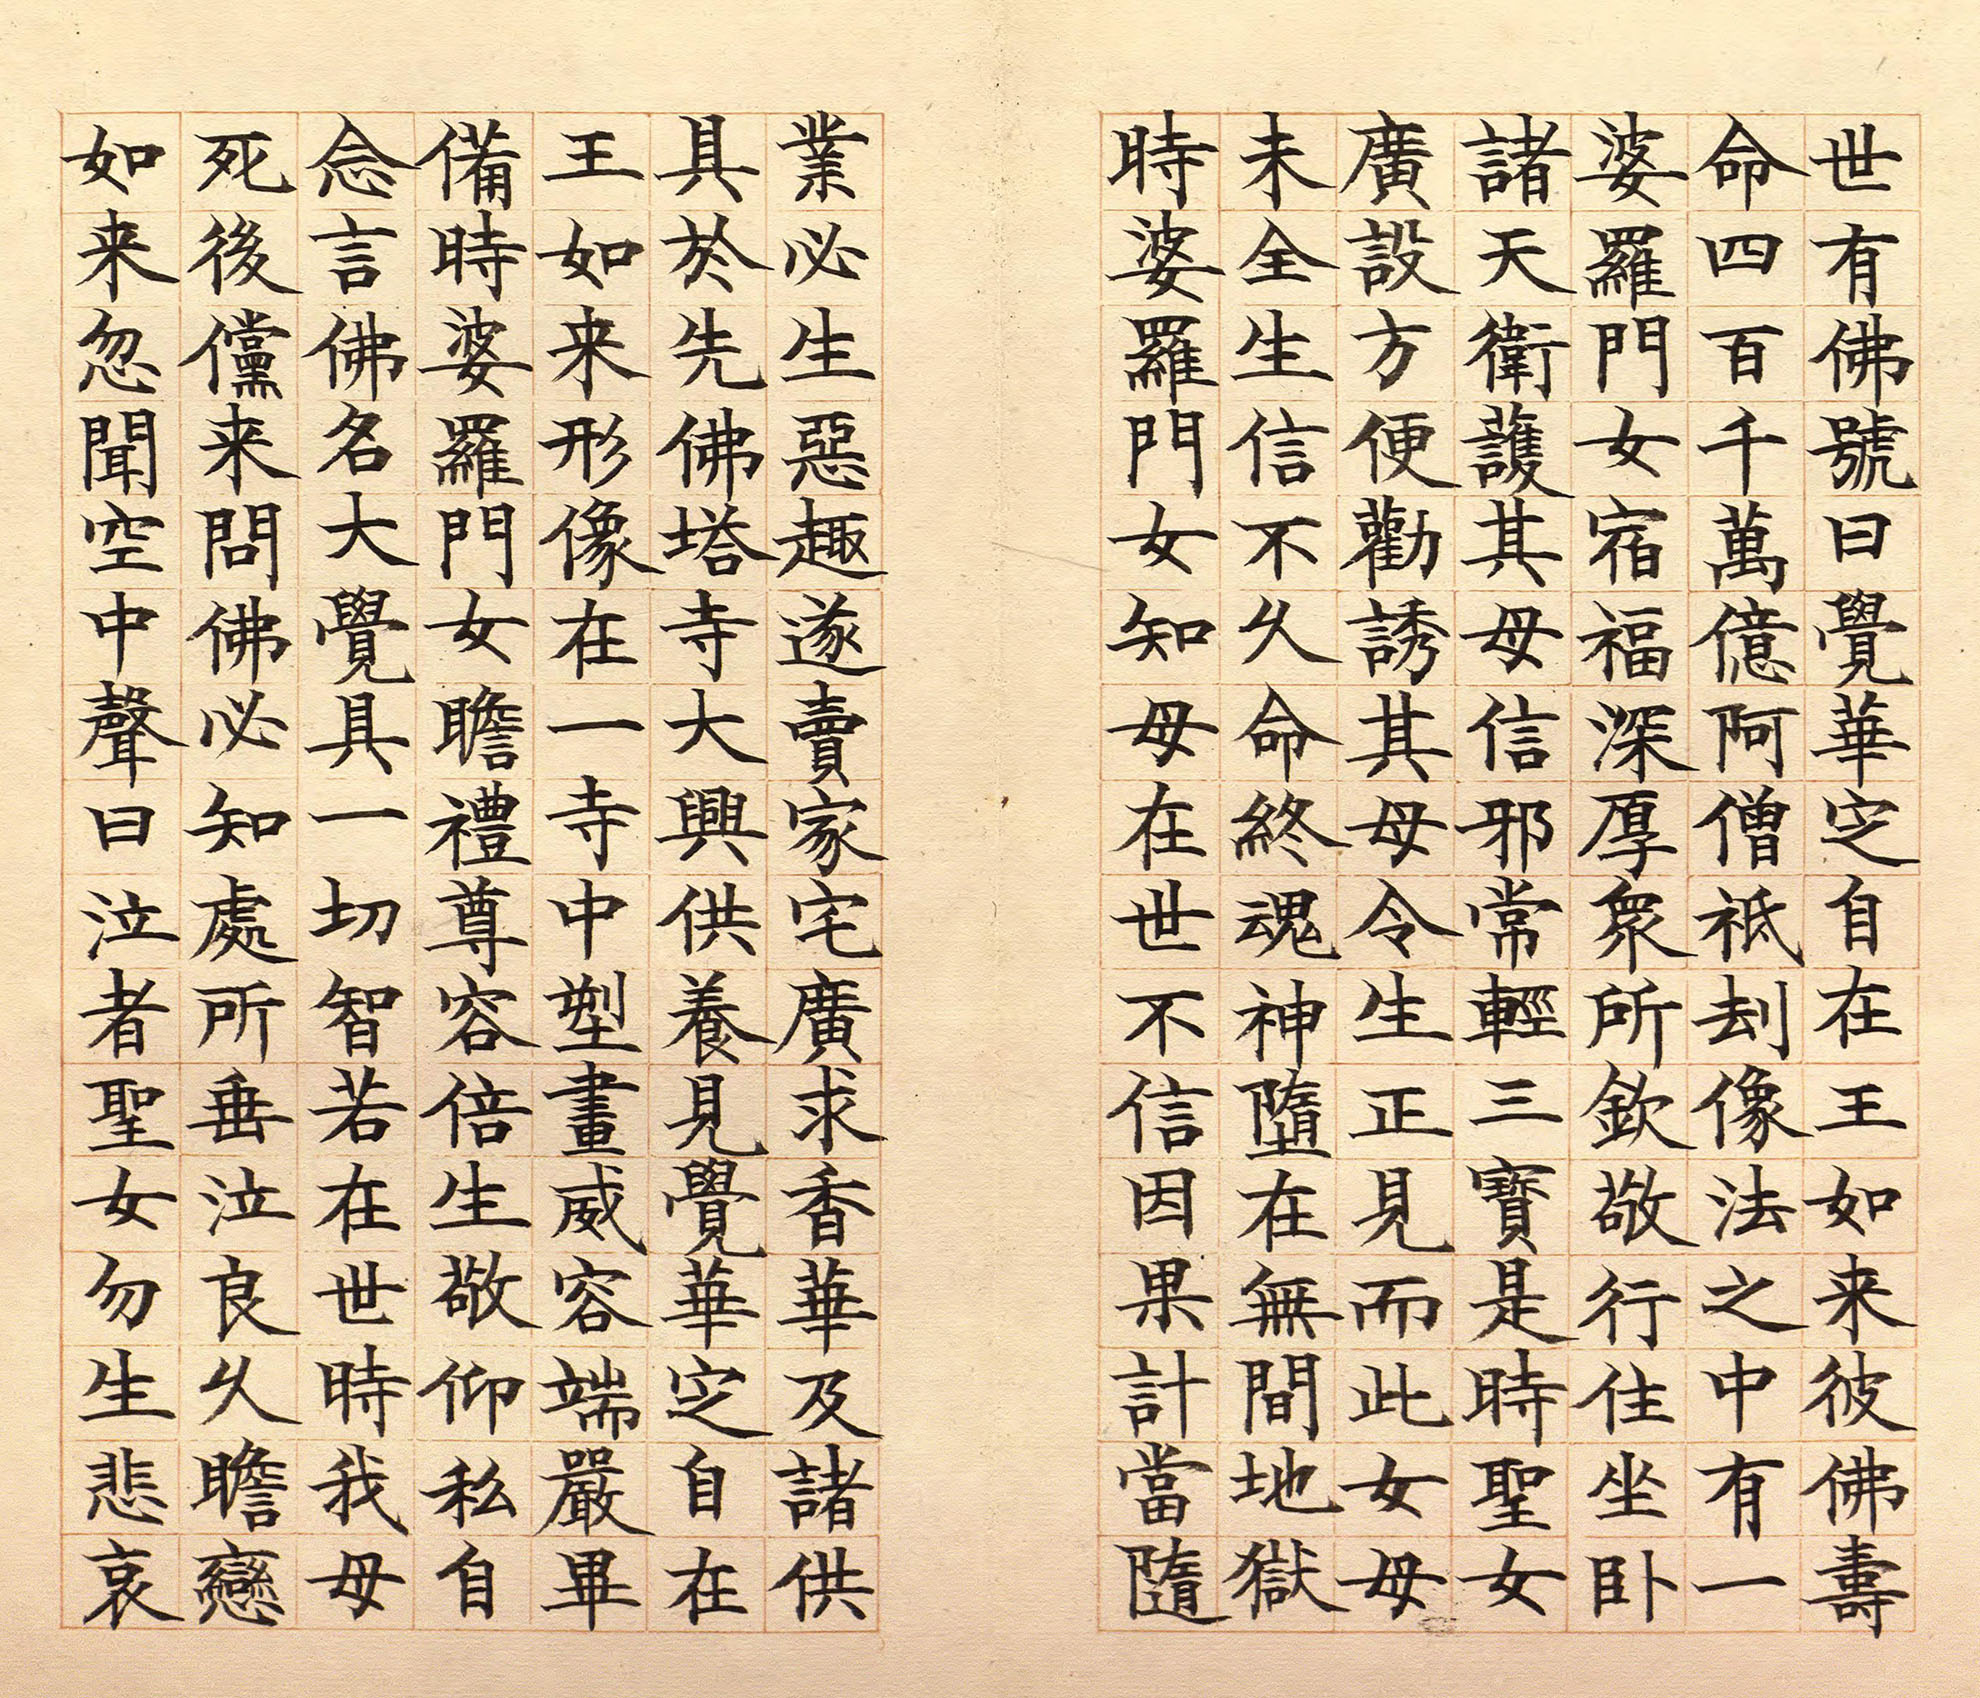 世有佛號曰覺華定自在王如来彼佛壽
命四百千萬億阿僧祇刦像法之中有一
婆羅門女宿福深厚衆所欽敬行住坐卧
諸天衛護其母信邪常輕三寶是時聖女
廣設方便勸誘其母令生正見而此女母
未全生信不久命終魂神墮在無間地獄
時婆羅門女知母在世不信因果計當隨
業必生惡趣遂賣家宅廣求香華及諸供
具於先佛塔寺大興供養見覺華定自在
王如来形像在一寺中塑畫威容端嚴畢
備時婆羅門女瞻禮尊容倍生敬仰私自
念言佛名大覺具一切智若在世時我母
死後儻来問佛必知處所垂泣良久瞻戀
如来忽聞空中聲曰泣者聖女勿生悲哀